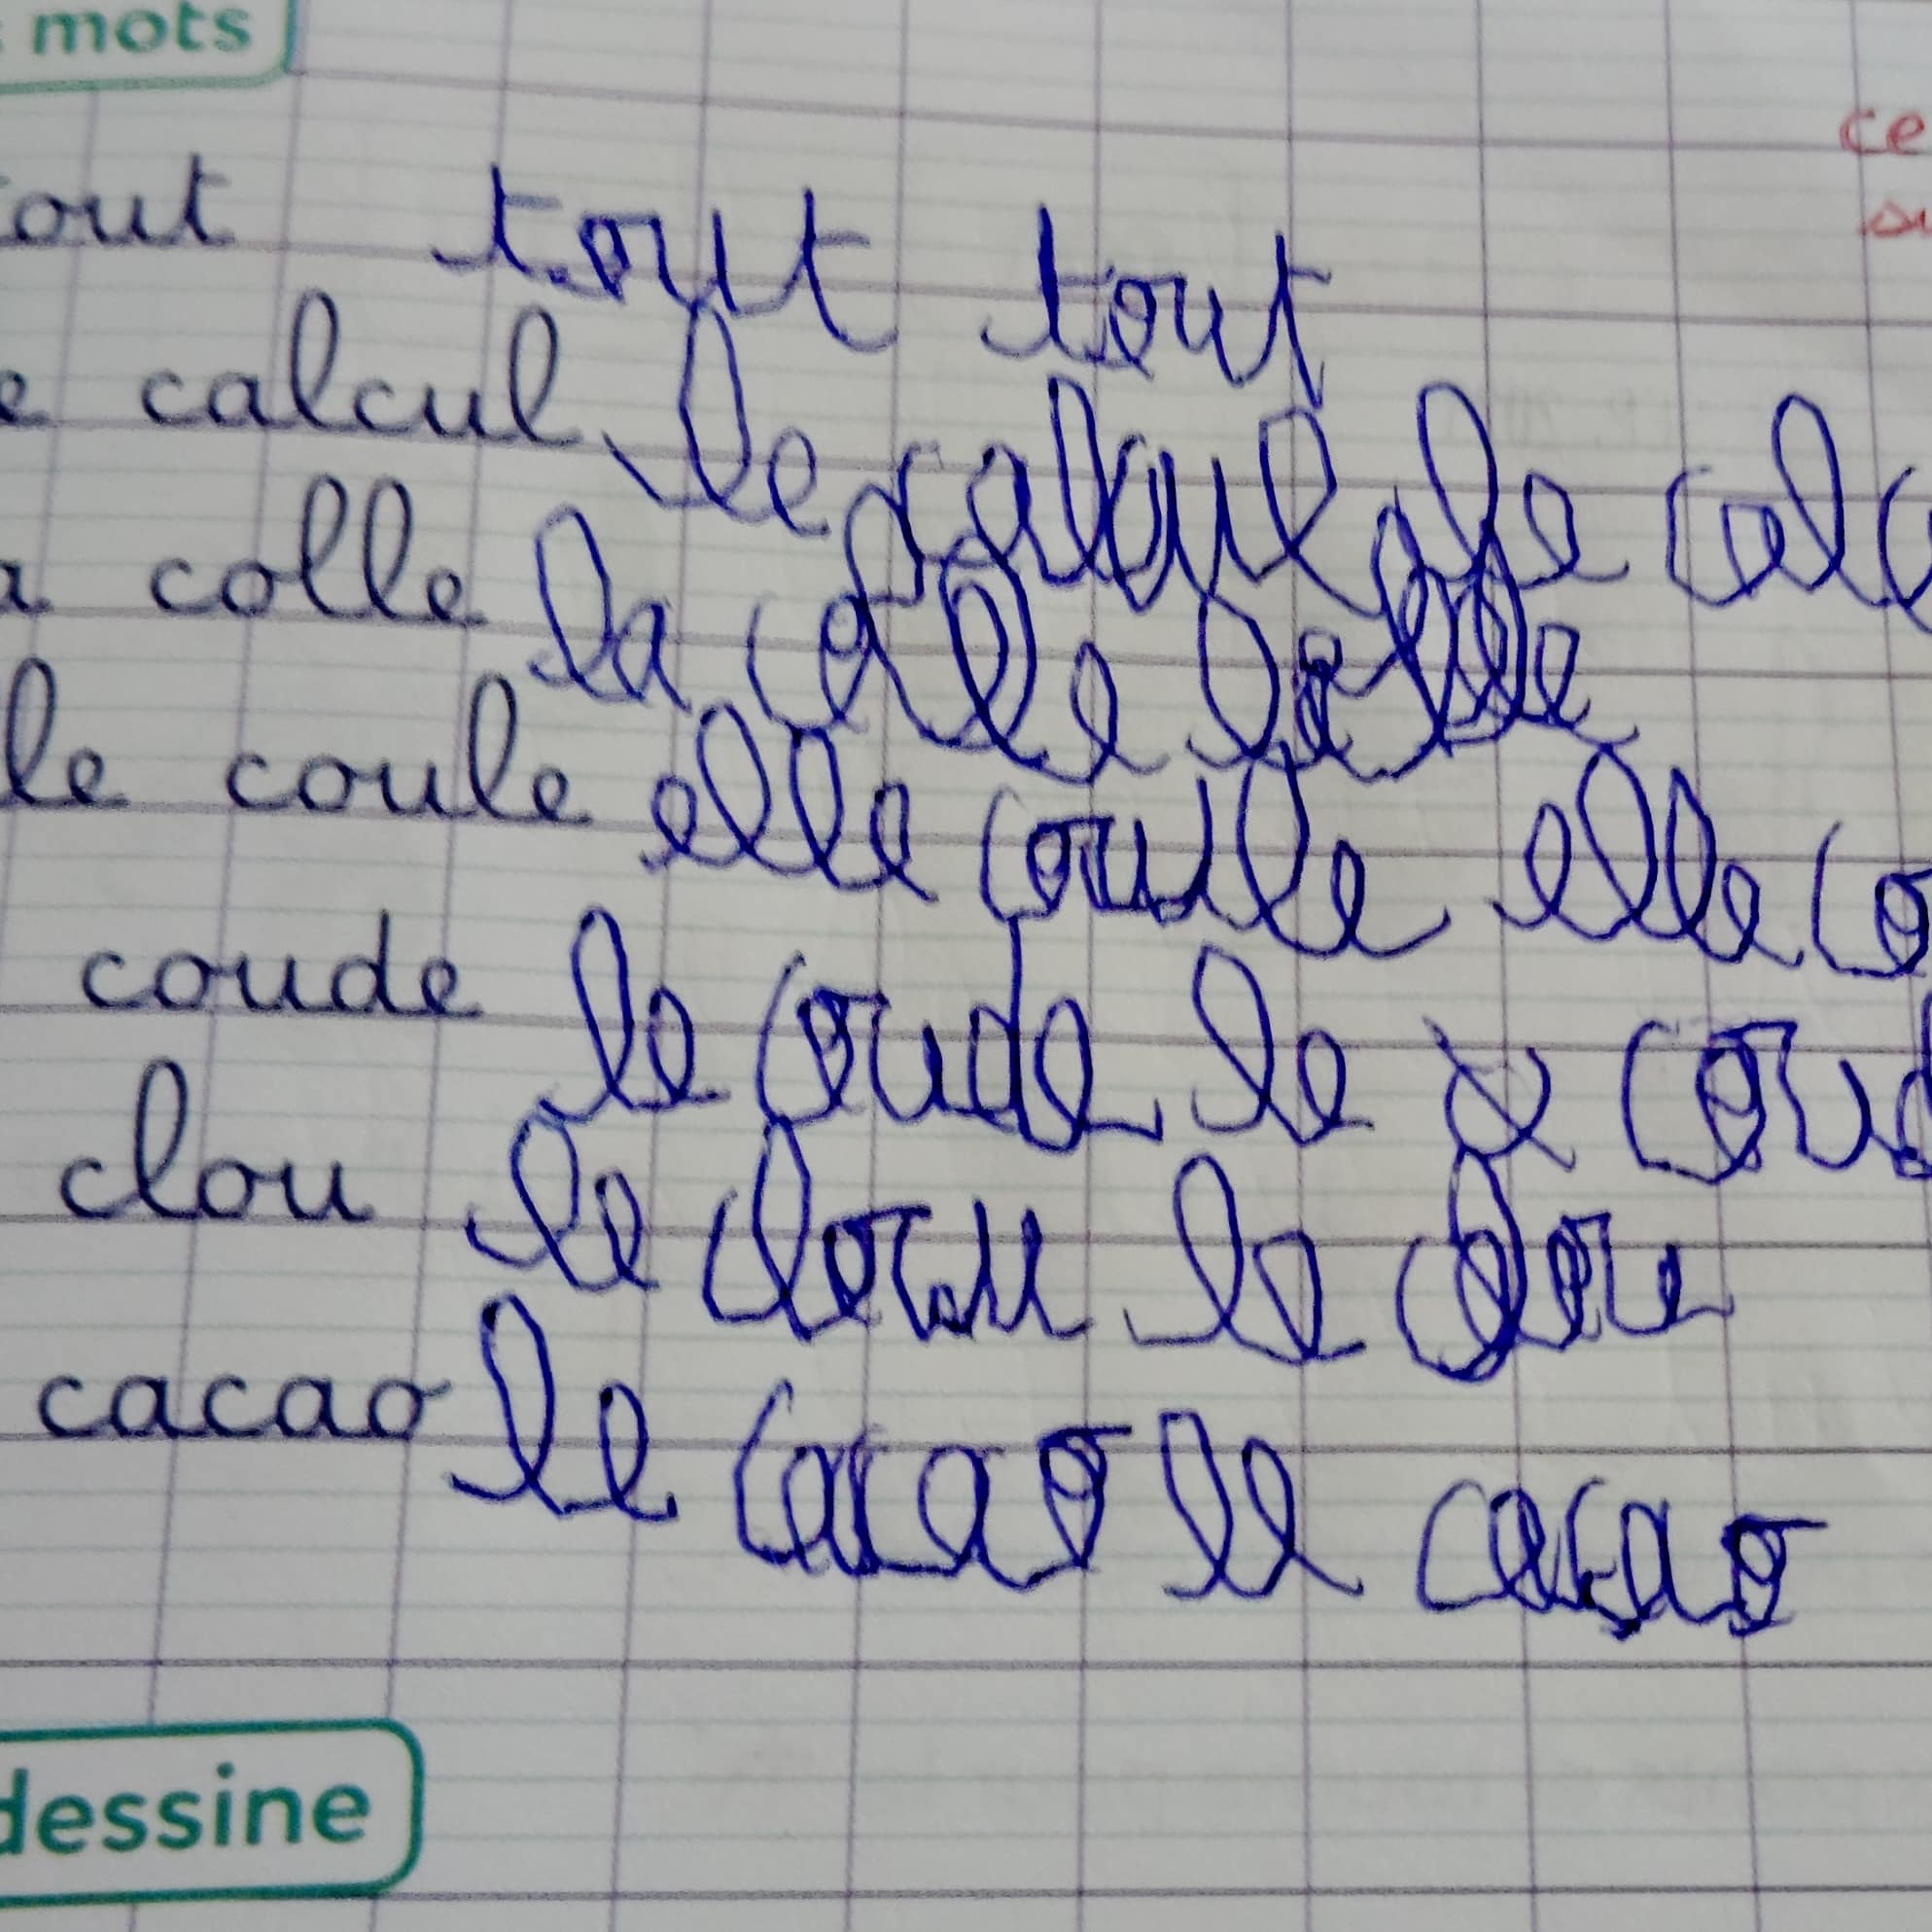 mots
ce
out tout tout su
e calcul le calcul le calc
a colle la colle la colle
le coule elle coule elle co
coude le coude le coud
clou le clou le clou
cacao le cacao le cacao
dessine